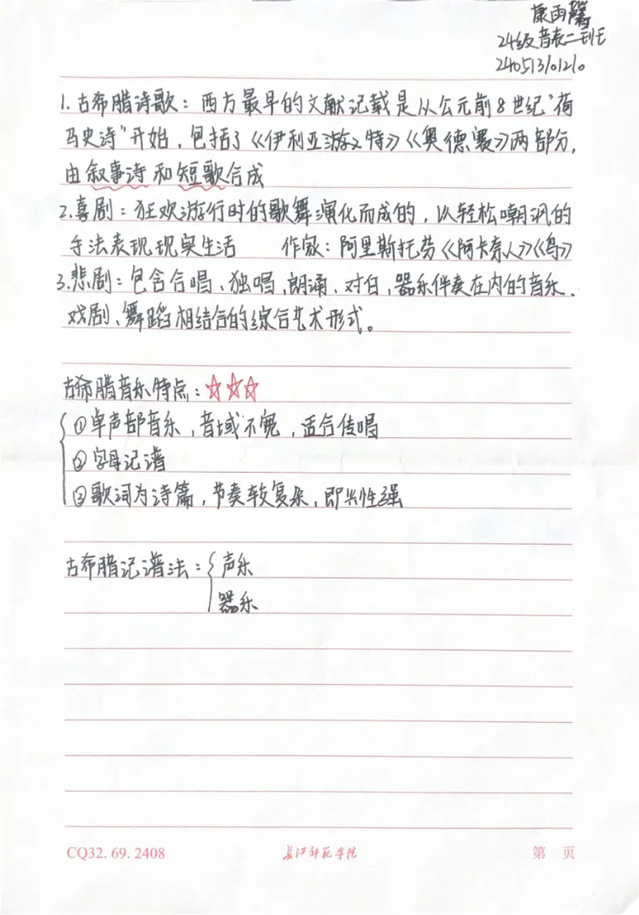 康雨馨
24级音表二班
240513/01210
1.古希腊诗歌：西方最早的文献记载是从公元前8世纪“荷
马史诗”开始，包括了《伊利亚游文特》《奥德赛》两部分，
由叙事诗和短歌合成
2.喜剧：狂欢游行时的歌舞演化而成的，以轻松嘲讽的
手法表现现实生活 作家：阿里斯托芬《阿卡奈人》《鸟》
3.悲剧：包含合唱、独唱、朗诵、对白，器乐伴奏在内的音乐、
戏剧、舞蹈相结合的综合艺术形式。
古希腊音乐特点：☆☆☆
①单声部音乐，音域不宽，适合传唱
②字母记谱
③歌词为诗篇，节奏较复杂，即兴性强
古希腊记谱法：{声乐
器乐
CQ32.69.2408 长江师范学院 第 页